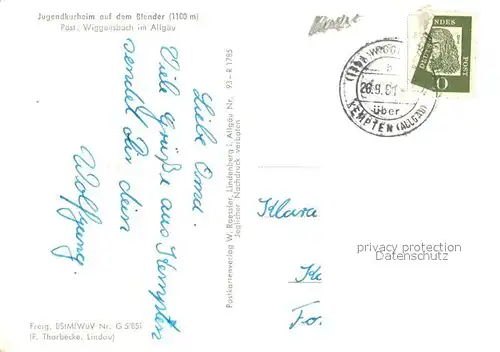 Jugendkurheim auf dem Blender (1100 m)
Post: Wiggensbach im Allgäu
Liebe Oma.
Viele Grüße aus Kempten
sendet Dir dein
Wolfgang.
Freig. BStMfWuV Nr. G 5/851
(F. Thorbecke, Lindau)
Postkartenverlag W. Roessler, Lindenberg i. Allgäu Nr. 93-R 1785
Jeglicher Nachdruck verboten
WIGG
26.9.61
über
KEMPTEN (ALLGÄU)
DEUTSCHE BUNDES POST
Klara
privacy protection
Datenschutz
K
Fo.